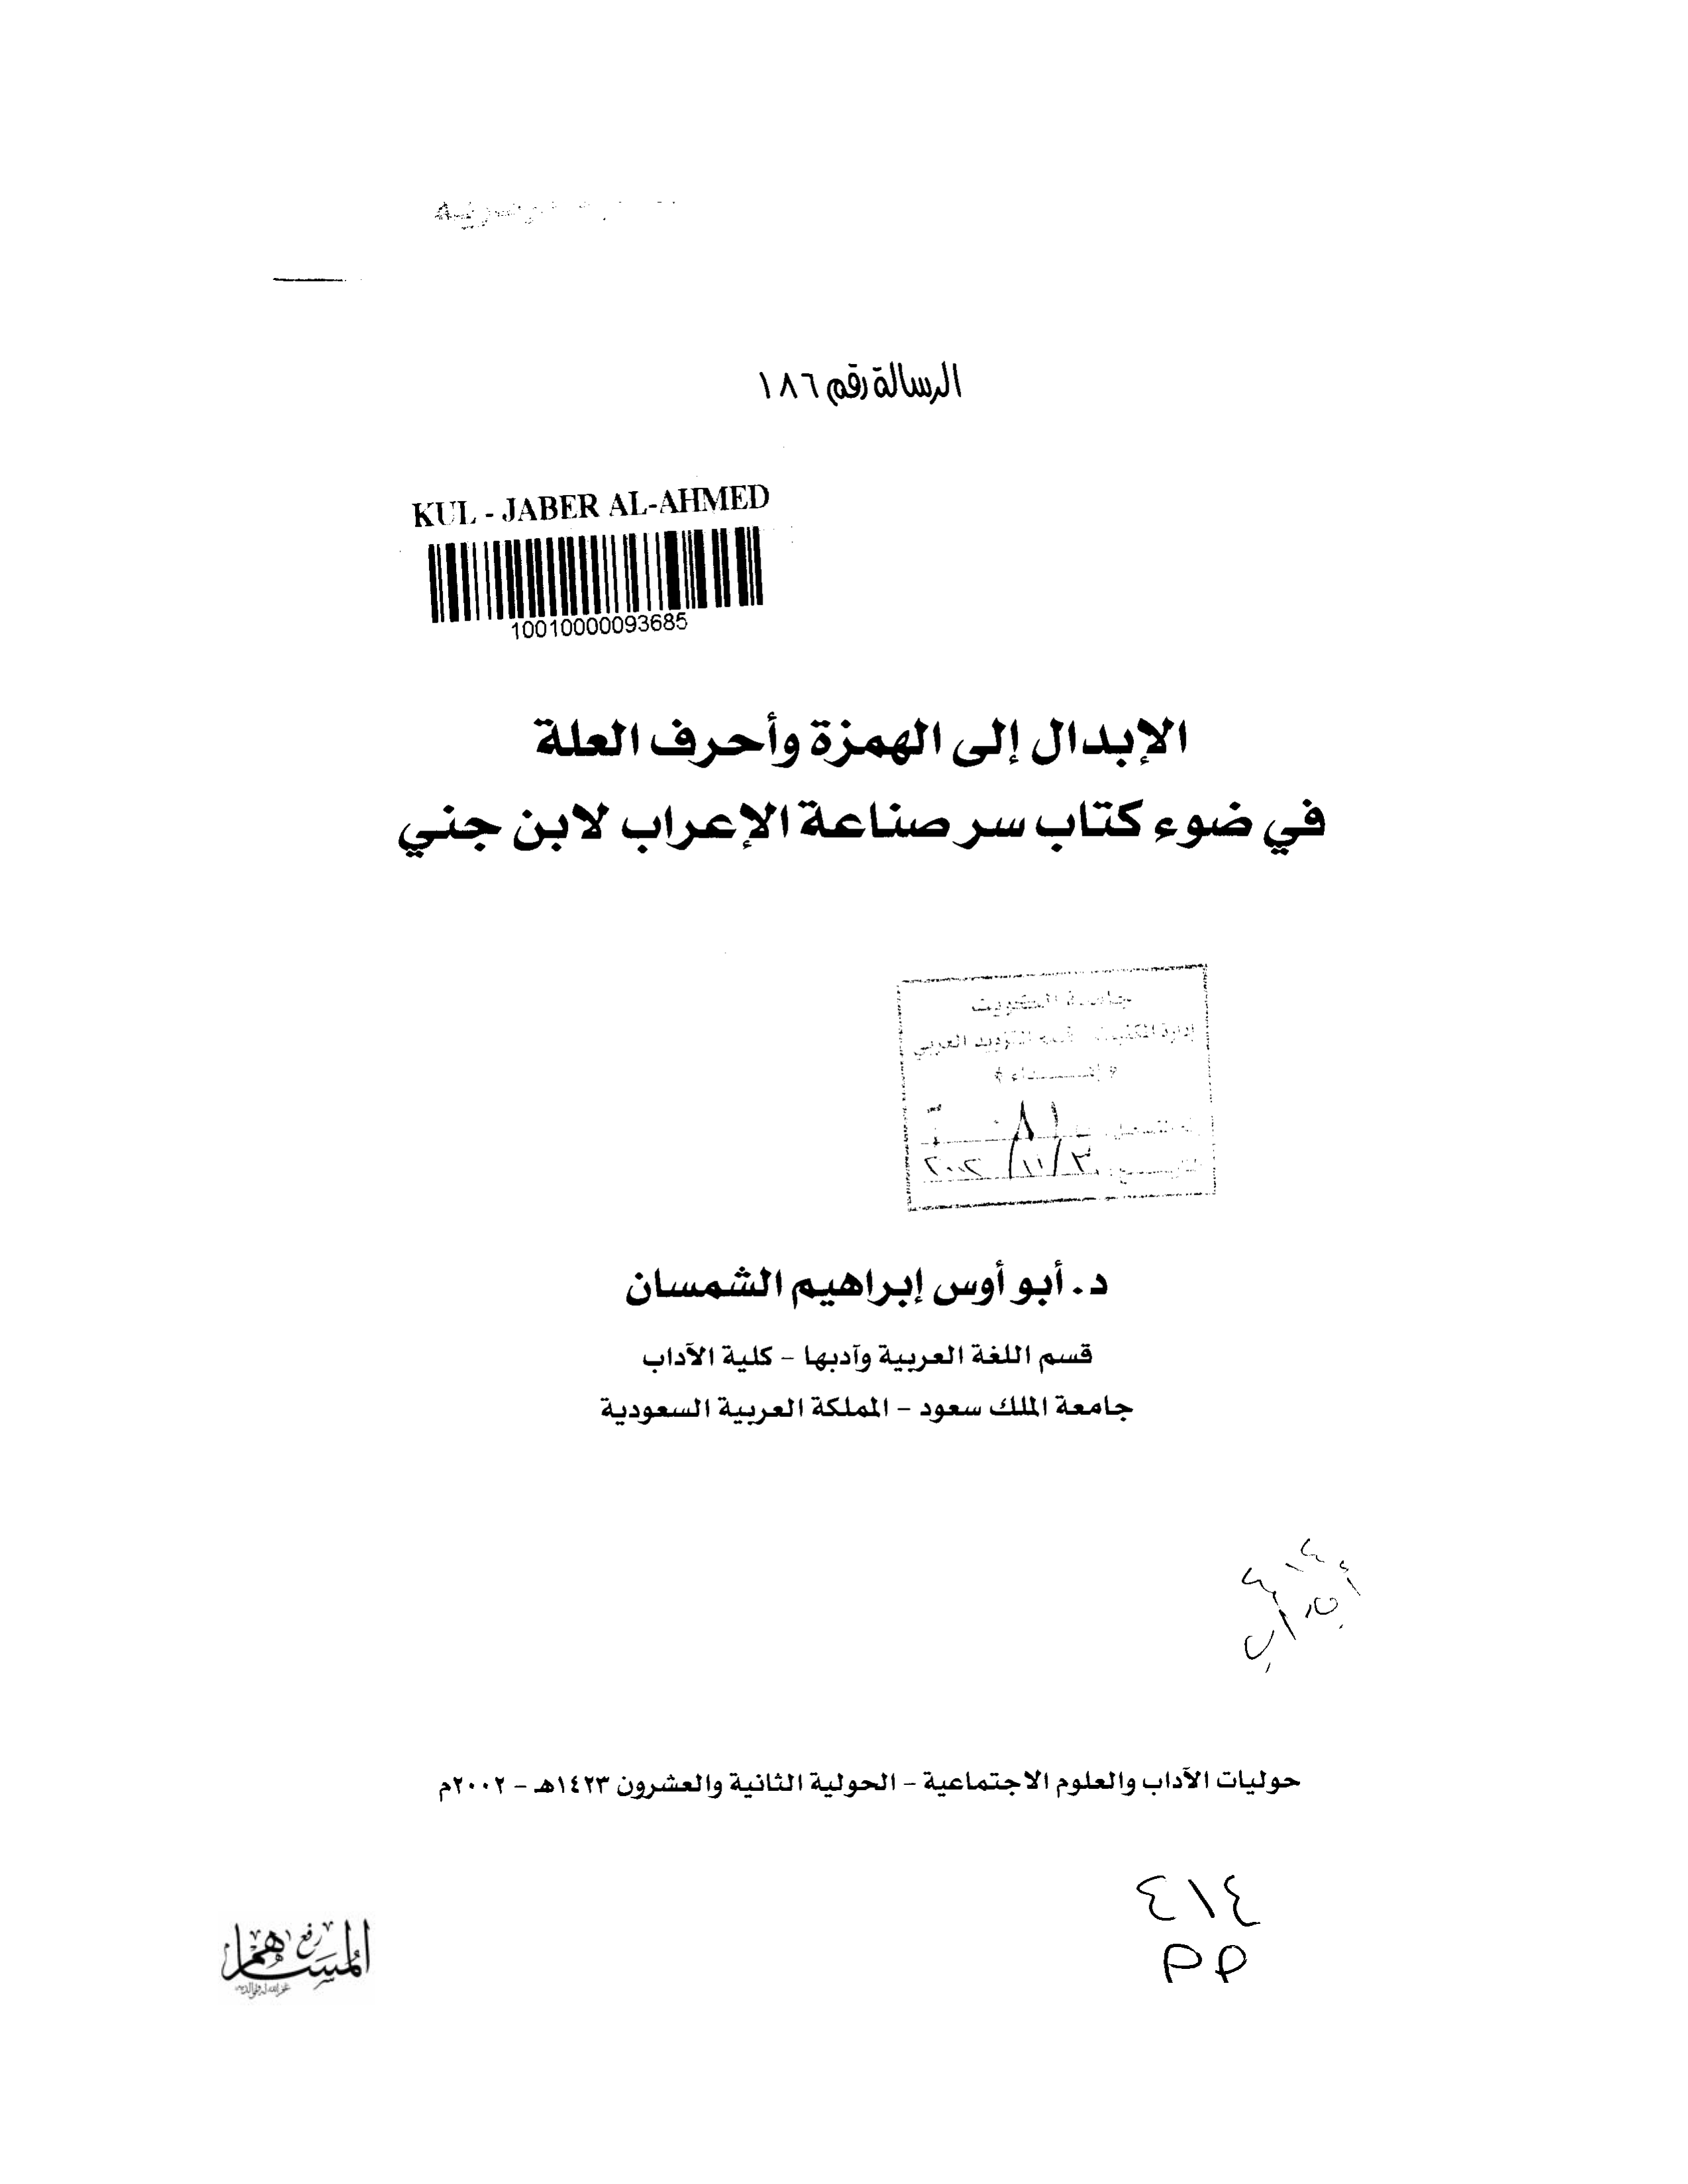 الرسالة رقم ١٨٦
KUL - JABER AL-AHMED
10010000093685
الإبدال إلى الهمزة وأحرف العلة
في ضوء كتاب سر صناعة الإعراب لابن جني
جامعة الكويت
إدارة المكتبات قسم التزويد العربي
إهداء
التاريخ: ٣/١١/٢٠٠٢
د. أبو أوس إبراهيم الشمسان
قسم اللغة العربية وآدبها - كلية الآداب
جامعة الملك سعود - المملكة العربية السعودية
حوليات الآداب والعلوم الاجتماعية - الحولية الثانية والعشرون ١٤٢٣هـ - ٢٠٠٢م
٤١٤